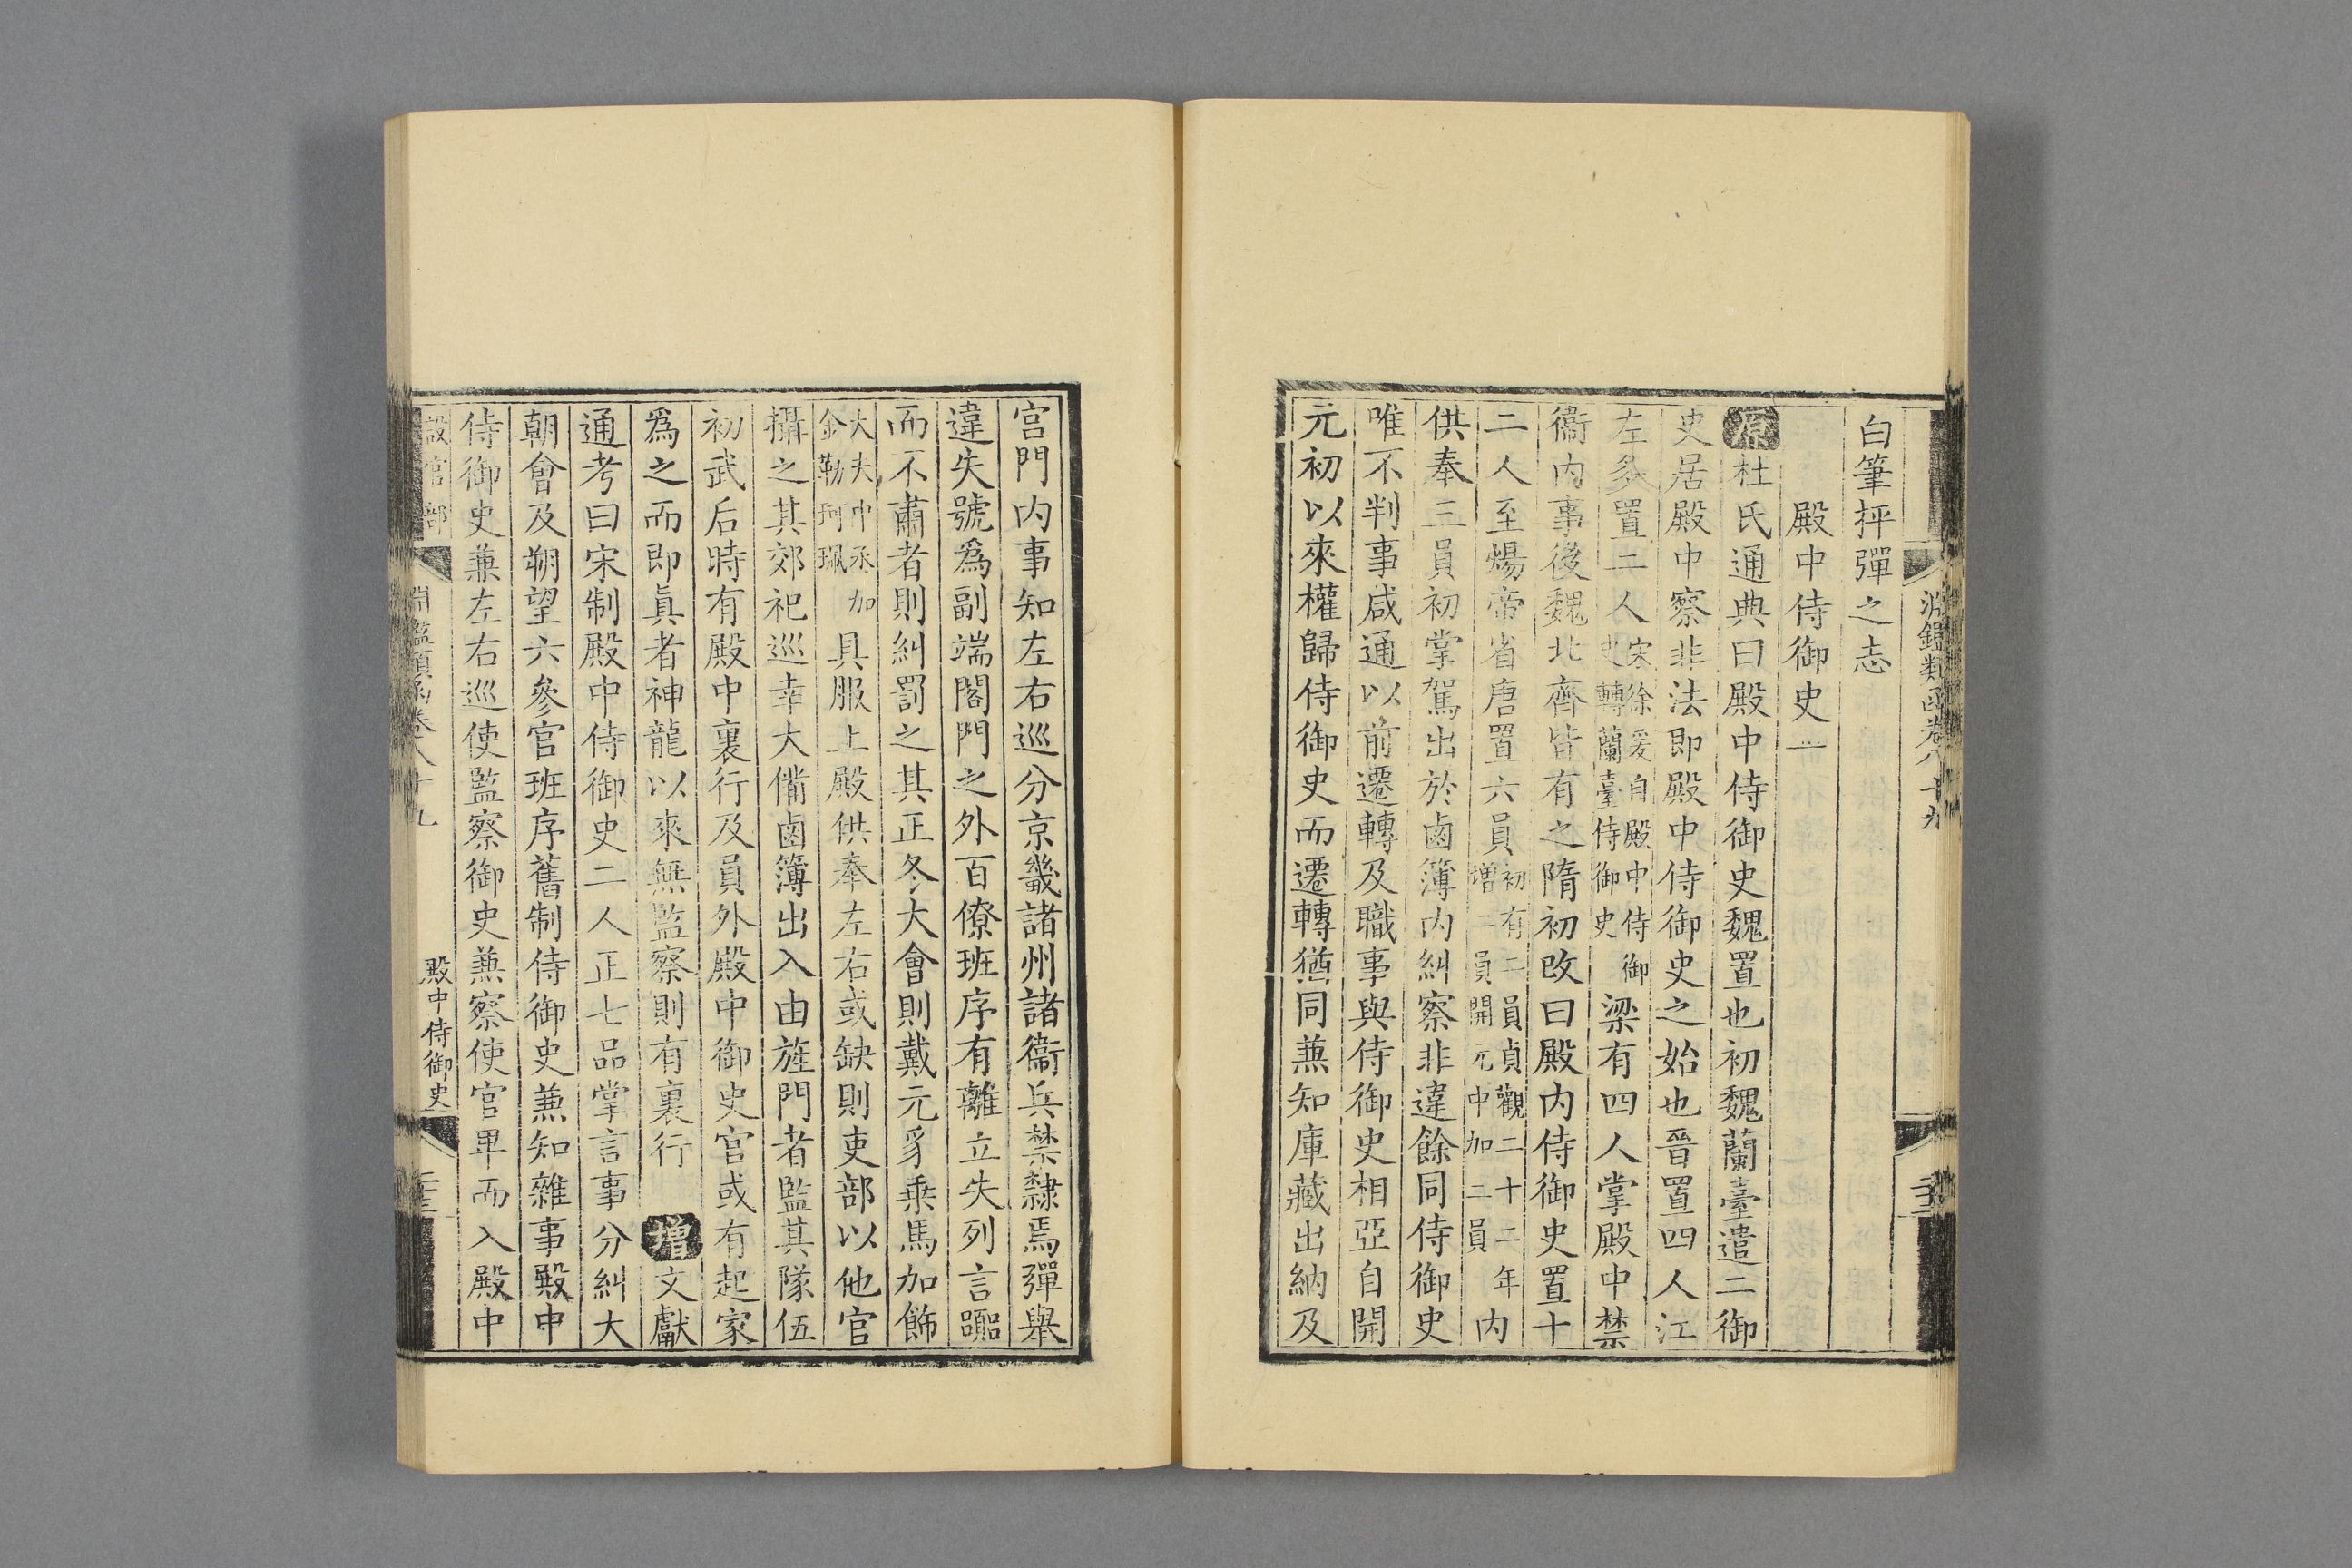 淵鑑類函卷八十九
白筆抨彈之志
殿中侍御史一
原杜氏通典曰殿中侍御史魏置也初魏蘭臺遣二御
史居殿中察非法即殿中侍御史之始也晉置四人江
左多置二人宋徐爰自殿中侍御史轉蘭臺侍御史梁有四人掌殿中禁
衞内事後魏北齊皆有之隋初改曰殿内侍御史置十
二人至煬帝省唐置六員初有二員貞觀二十二年增二員開元中加二員内
供奉三員初掌駕出於鹵簿内糾察非違餘同侍御史
唯不判事咸通以前遷轉及職事與侍御史相亞自開
元初以來權歸侍御史而遷轉猶同兼知庫藏出納及
宮門内事知左右巡分京畿諸州諸衞兵禁隸焉彈舉
違失號爲副端閤門之外百僚班序有離立失列言囂
而不肅者則糾罰之其正冬大會則戴元豸乘馬加飾
大夫中丞加金勒珂珮具服上殿供奉左右或缺則吏部以他官
攝之其郊祀巡幸大備鹵簿出入由旌門者監其隊伍
初武后時有殿中裏行及員外殿中御史官或有起家
爲之而即眞者神龍以來無監察則有裏行 增文獻
通考曰宋制殿中侍御史二人正七品掌言事分糾大
朝會及朔望六參官班序舊制侍御史兼知雜事殿中
侍御史兼左右巡使監察御史兼察使官卑而入殿中
設官部
淵鑑類函卷八十九
殿中侍御史